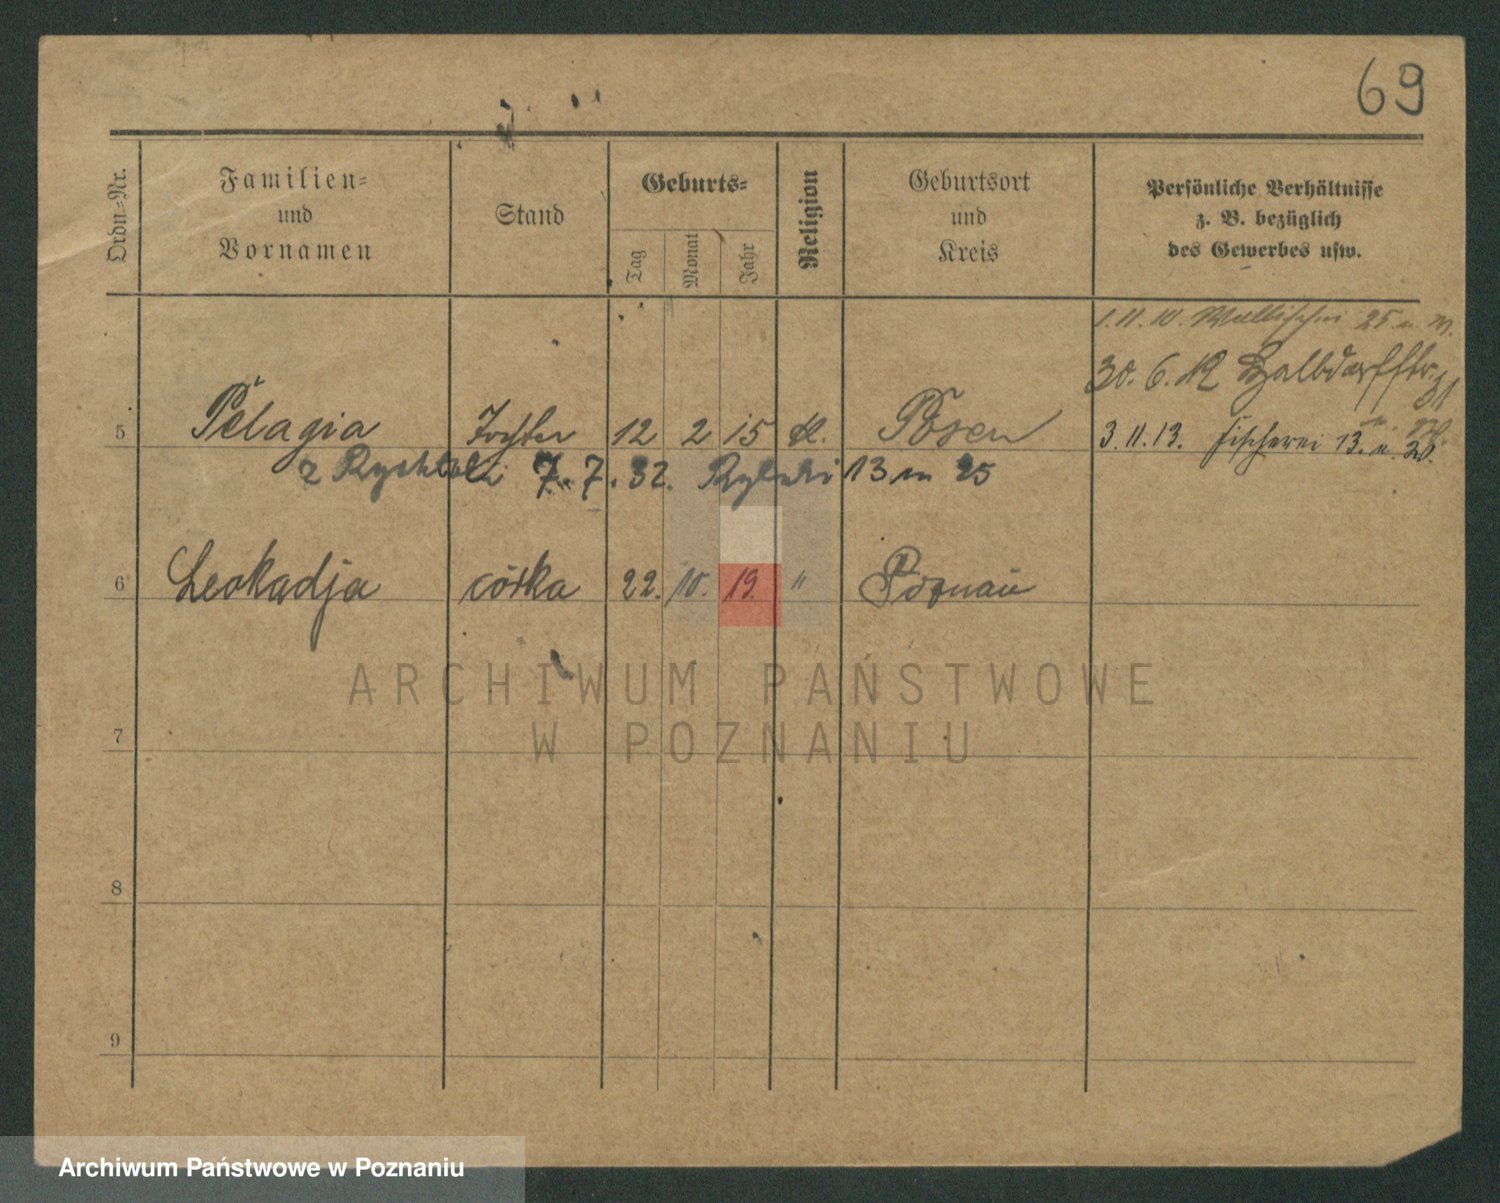 69
Ordn.-Nr.
Familien-
und
Vornamen
Stand
Geburts-
Tag
Monat
Jahr
Religion
Geburtsort
und
Kreis
Persönliche Verhältnisse
z. B. bezüglich
des Gewerbes usw.
1.11.10. Wallischei 25 u. W.
30.6.12 Halbdorfstr. 31
5 Pelagia Tochter 12 2 15 kl. Posen 3.11.13. Fischerei 13. u. W.
z Rychtal 7.7.32. Rybaki 13 m 25
6 Leokadja córka 22. 10. 19. " Poznań
ARCHIWUM PAŃSTWOWE
W POZNANIU
7
8
9
Archiwum Państwowe w Poznaniu